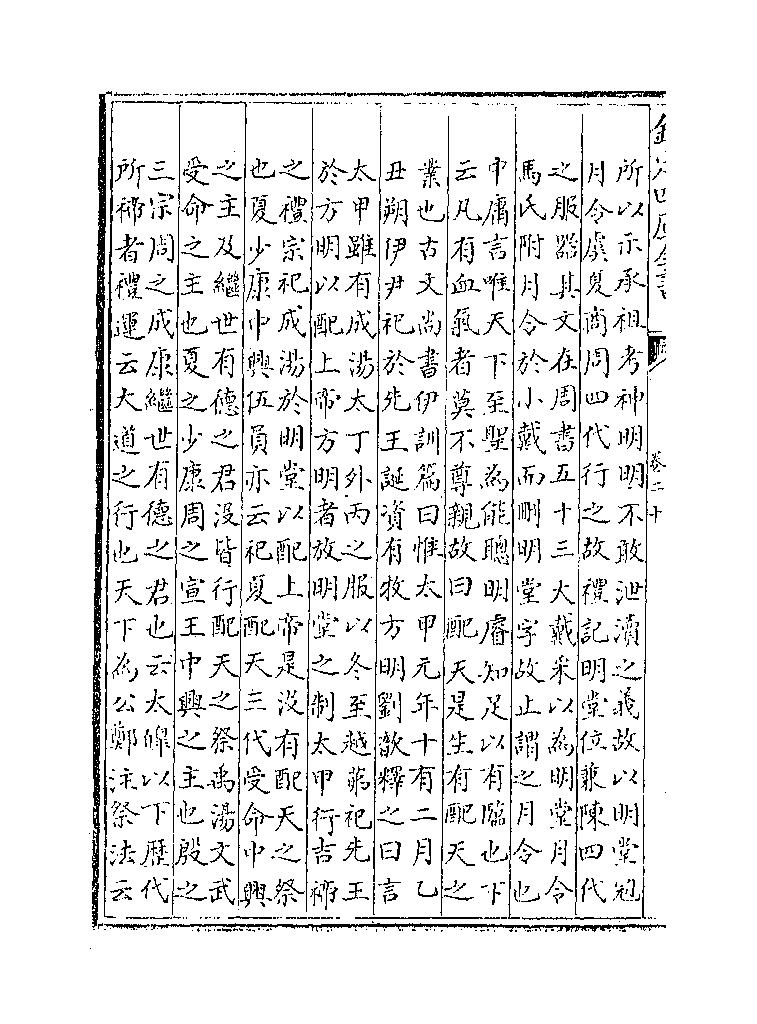 欽定四庫全書
卷二十
所以示承祖考神明明不敢泄瀆之義故以明堂冠
月令虞夏商周四代行之故禮記明堂位兼陳四代
之服器其文在周書五十三大戴采以為明堂月令
馬氏附月令於小戴而刪明堂字故止謂之月令也
中庸言唯天下至聖為能聰明睿知足以有臨也下
云凡有血氣者莫不尊親故曰配天是生有配天之
業也古文尚書伊訓篇曰惟太甲元年十有二月乙
丑朔伊尹祀於先王誕資有牧方明劉歆釋之曰言
太甲雖有成湯太丁外丙之服以冬至越茀祀先王
於方明以配上帝方明者放明堂之制太甲行吉禘
之禮宗祀成湯於明堂以配上帝是沒有配天之祭
也夏少康中興伍員亦云祀夏配天三代受命中興
之主及繼世有德之君沒皆行配天之祭禹湯文武
受命之主也夏之少康周之宣王中興之主也殷之
三宗周之成康繼世有德之君也云太皥以下歷代
所禘者禮運云大道之行也天下為公鄭注祭法云